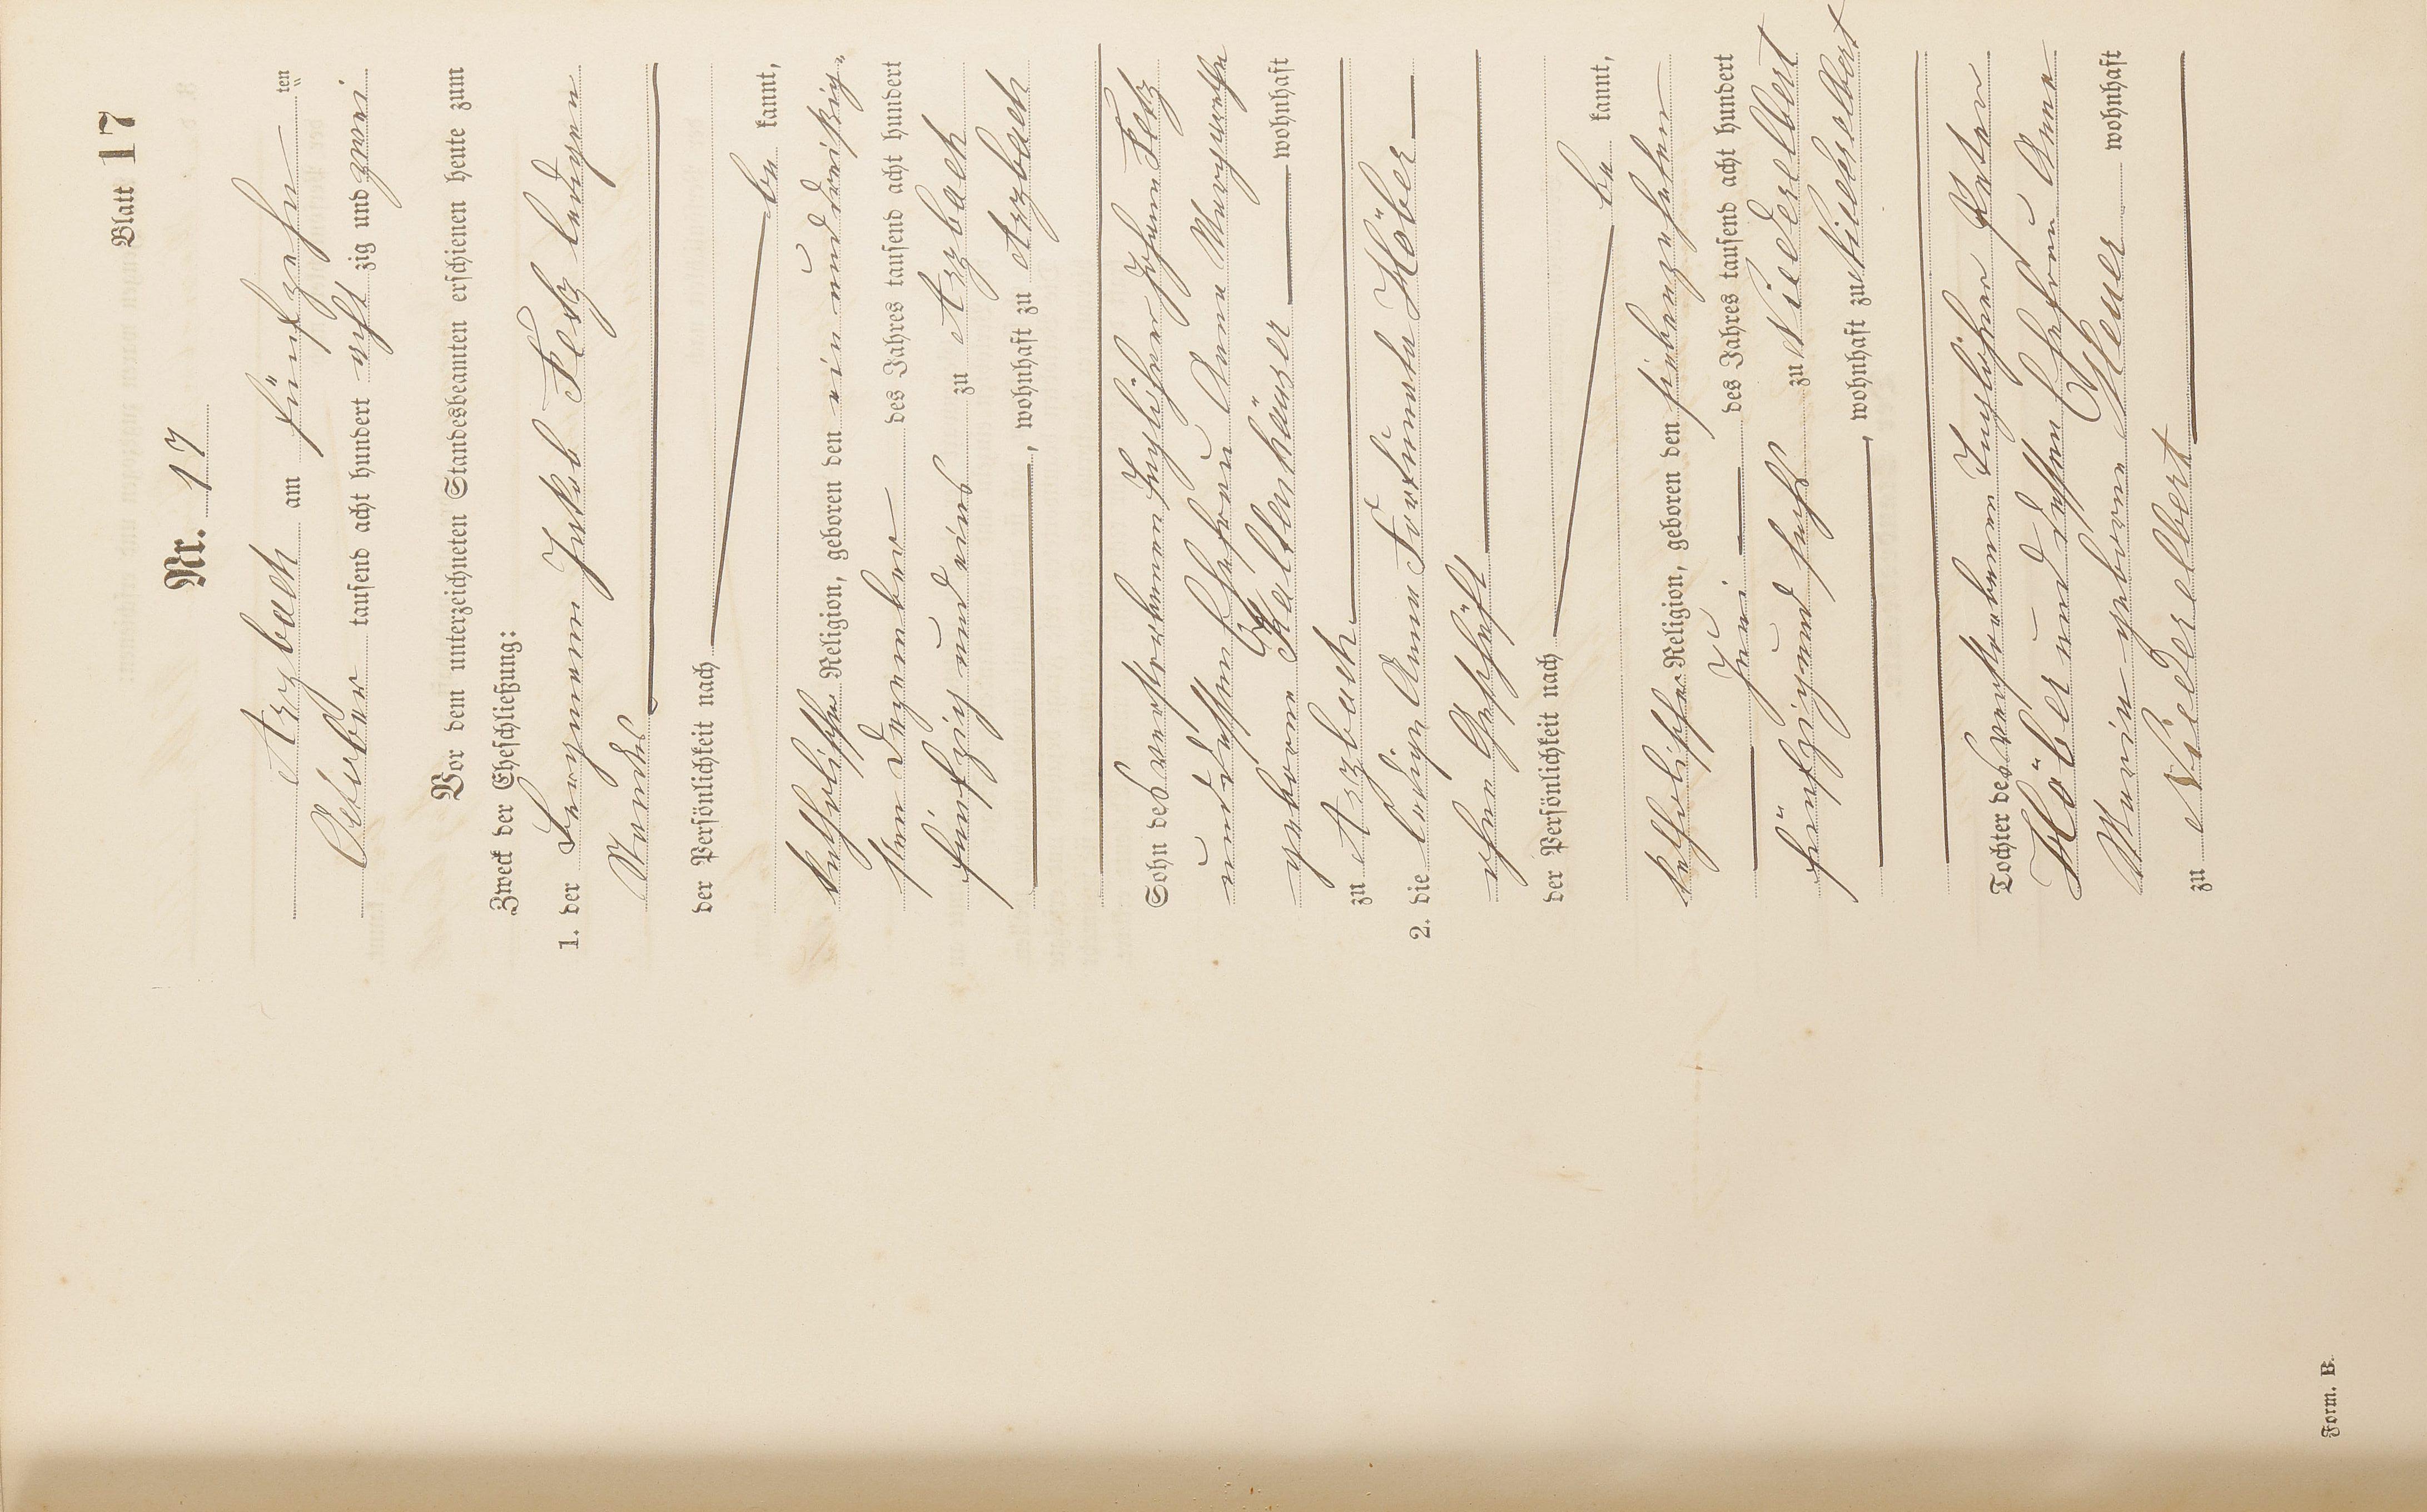 Blatt 17
Nr. 17
Arzbach am fünfzehn ten
October tausend acht hundert acht zig und zwei
Vor dem unterzeichneten Standesbeamten erschienen heute zum
Zweck der Eheschließung:
1. der Bergmann Jakob Fetz ledigen
Standes
der Persönlichkeit nach
be kannt,
katholischer Religion, geboren den ein und dreißig-
sten Dezember des Jahres tausend acht hundert
fünfzig und eins zu Arzbach
, wohnhaft zu Arzbach
Sohn des verstorbenen Taglöhner Johann Fetz
und dessen Ehefrau Anna Margaretha
geborne Kaltenhäuser wohnhaft
zu Arzbach
2. die ledige Anna Höber
ohne Geschäft
der Persönlichkeit nach
be kannt,
katholischer Religion, geboren den siebenzehnten
Juni des Jahres tausend acht hundert
fünfzig und sechs zu Niederelbert
, wohnhaft zu Niederelbert
Tochter des verstorbenen Taglöhner Peter
Höber und dessen Ehefrau Anna
Maria geborne wohnhaft
zu Niederelbert
Form. B.